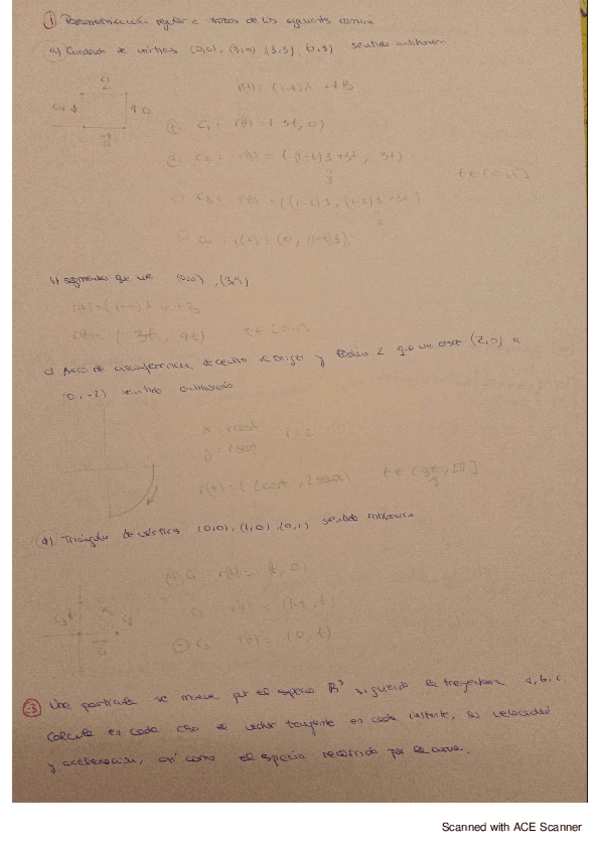 ① Parametrización regular a trozos de las siguientes curvas
a) Cuadrado de vértices (0,0), (3,0) (3,3), (0,3) sentido antihorario
r(t) = (1-t)A + tB
C₁ = r(t) = (3t, 0)
C₂ = r(t) = ((1-t)3+3t, 3t)
3
t ∈ [0,1]
r(t) = ((1-t)3, (1-t)3+3t)
C₄ = r(t) = (0, (1-t)3)
b) segmento que une (0,0), (3,9)
r(t) = (3t, 9t) t ∈ [0,1]
c) Arco de circunferencia de centro el origen y Radio 2 que va desde (2,0) a
(0,-2) sentido
x = rcost
y = rsent r = 2
r(t) = (2cost, 2sent) t ∈
d) Triángulo de vértices (0,0), (1,0), (0,1) sentido
C₁ r(t) = (t, 0)
r(t) = (1-t, t)
C₃ r(t) = (0, t)
3 Una partícula se mueve por el espacio R³ siguiendo la trayectoria a, b, c.
Calcula en cada caso el vector tangente en cada instante, su velocidad
y aceleración, así como el espacio recorrido por la curva.
Scanned with ACE Scanner